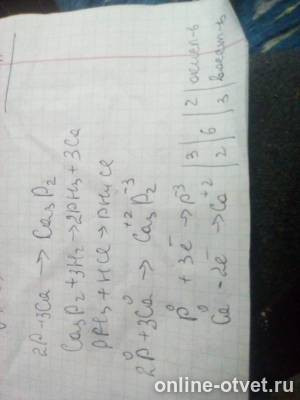 2P+3Ca → Ca₃P₂
Ca₃P₂+3H₂→2PH₃+3Ca
PH₃+HCl→PH₄Cl
2P⁰+3Ca⁰ → Ca₃⁺²P₂⁻³
P⁰ +3e⁻ →P⁻³ | 3 | 6 | 2 | окисл-ь
Ca⁰ -2e⁻ →Ca⁺² | 2 | | 3 | восст-ь
online-otvet.ru